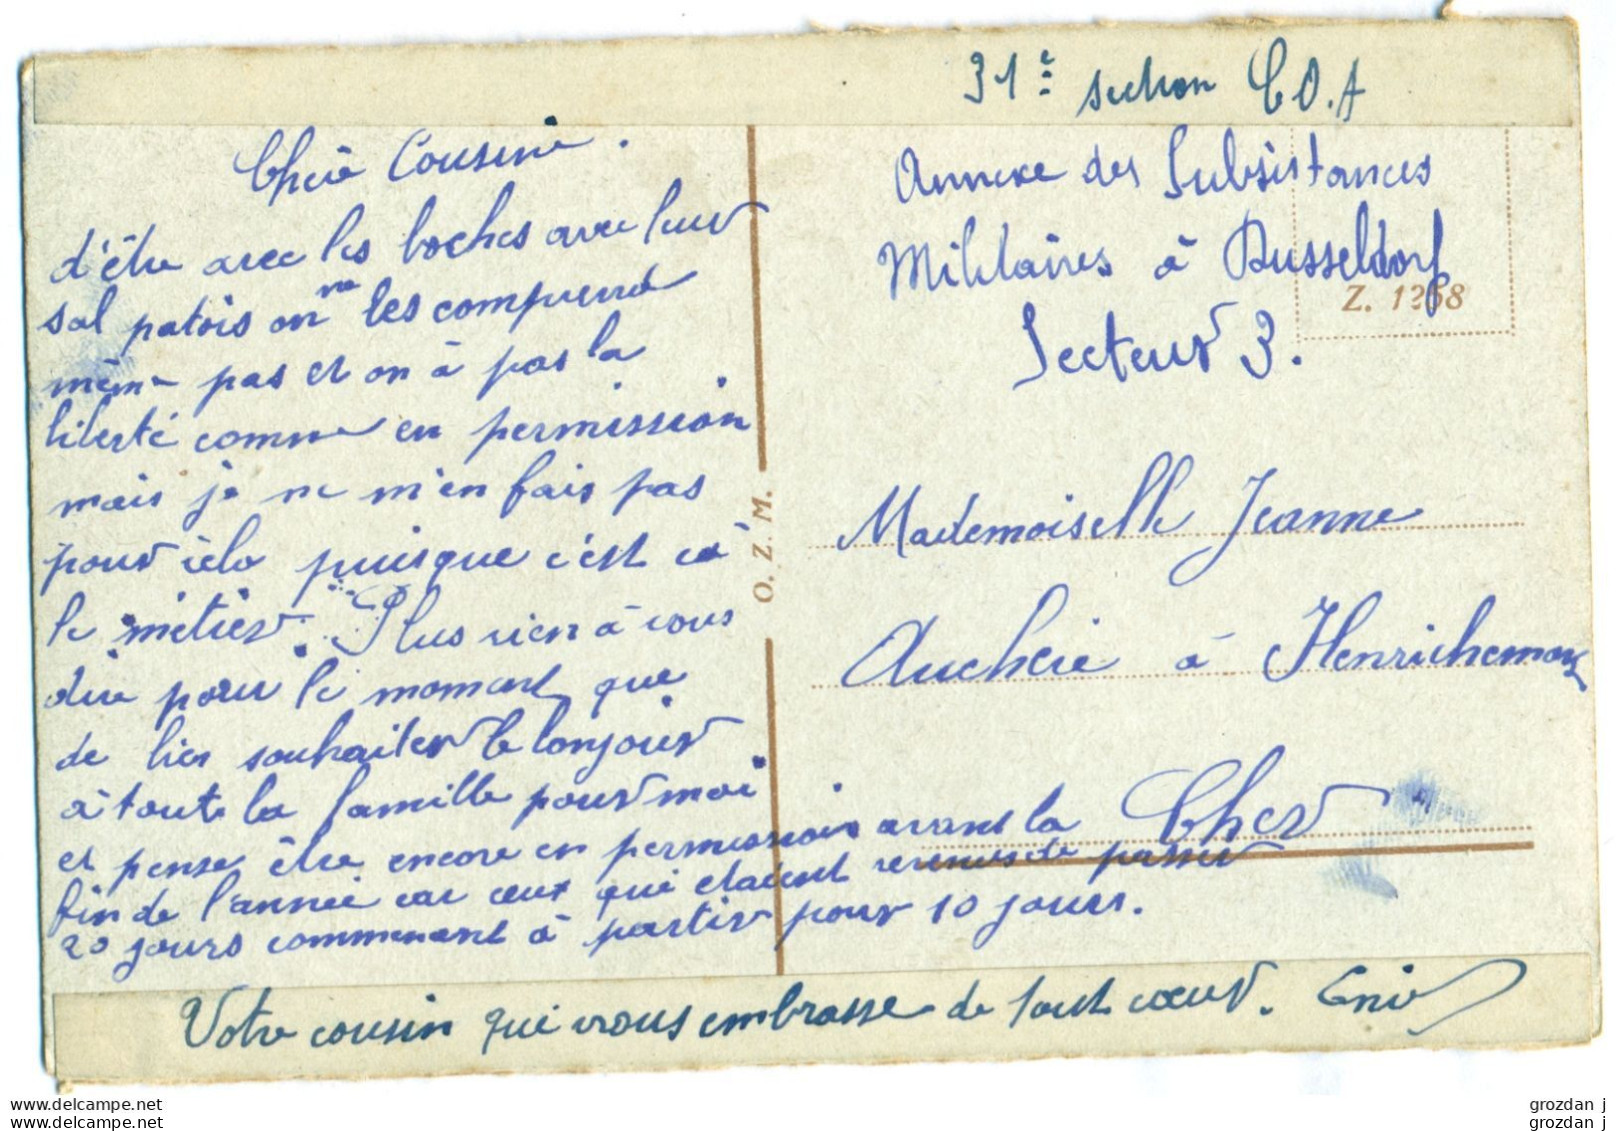 31e section C.O.A
Chère Cousine.
d'être avec les boches avec leur
sal patois on ne les comprend
même pas et on à pas la
liberté comme en permission
mais je ne m'en fais pas
pour cela puisque c'est ça
le métier. Plus rien à vous
dire pour le moment que
de bien souhaiter le bonjour
à toute la famille pour moi
et pense être encore en permission avant la
fin de l'année car ceux qui etaient revenus de passer
20 jours commencent à partir pour 10 jours.
Votre cousin qui vous embrasse de tout cœur.
O. Z. M.
Annexe des Subsistances
Militaires à Dusseldorf
Z. 1268
Secteur 3.
Mademoiselle Jeanne
à Henrichemont
Cher
www.delcampe.net
www.delcampe.net
grozdan j
grozdan j